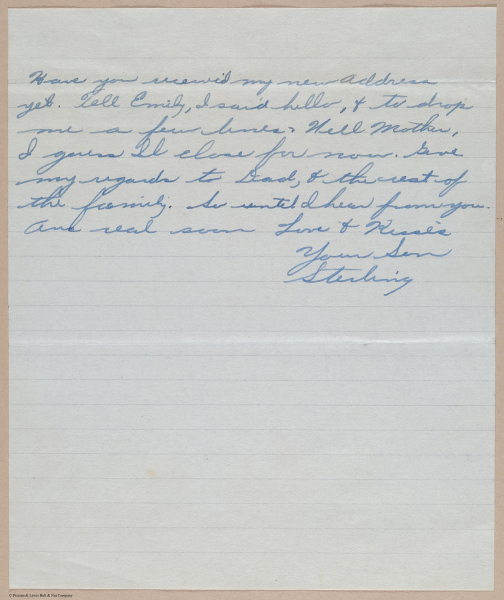 Have you received my new address
yet. Tell Emily, I said hello, & to drop
me a few lines. Well Mother,
I guess Il close for now. Give
my regards to Dad, & the rest of
the family. So until I hear from you.
Ans real soon Love & Kisses
Your Son
Sterling